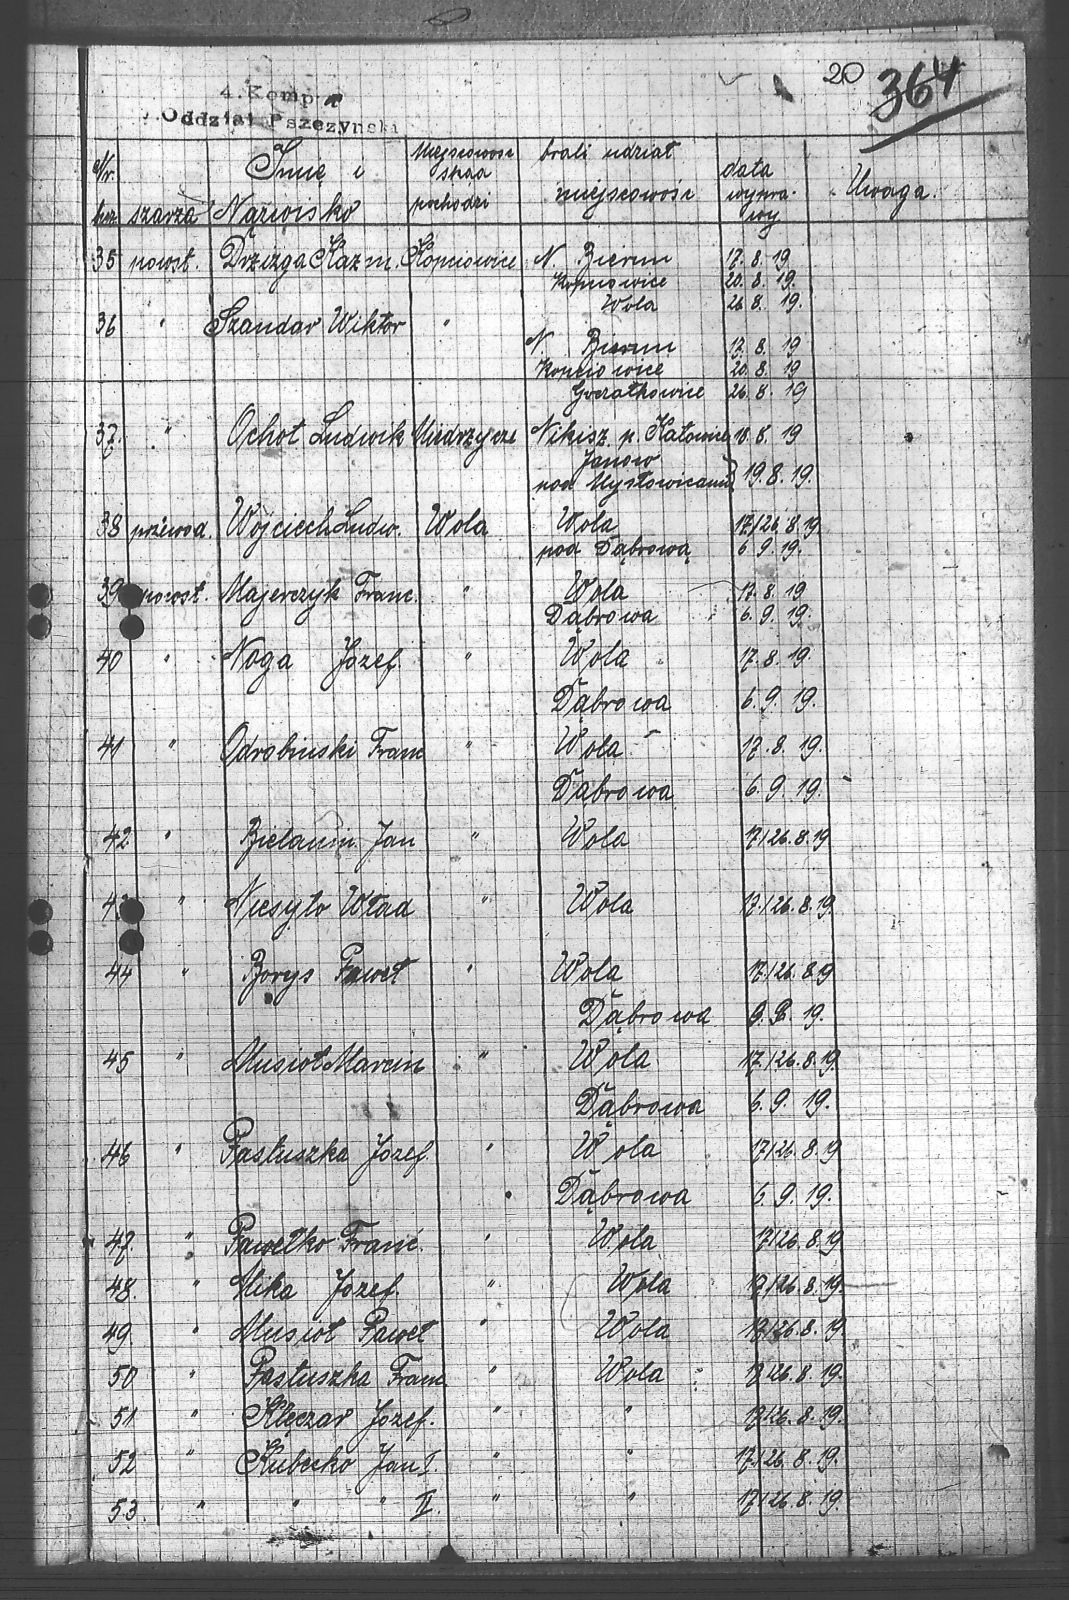 20 364
4. Komp
Oddział Pszczyński
Nr. bież. szarża Imię i Nazwisko Miejscowość skąd pochodzi brali udział miejscowość data wyprawy Uwaga.
35 powst. Drzizga Kazm. Kopciowice N Bierun 17. 8. 19
Kopciowice 20. 8. 19.
Wola 26 8. 19.
36 " Szandar Wiktor "
N. Bierun 17. 8. 19
Kopciowice 20. 8. 19
Goczałkowice 26. 8. 19
37. " Ochot Ludwik Miedrzycze Nikisz p. Katowice 18. 8. 19
Janow
pod Mysłowicami 19. 8. 19.
38 przewod. Wojciech Ludw. Wola Wola 17/26. 8. 19.
pod Dąbrową 6. 9. 19.
39 powst. Majerczyk Franc. " Wola 17. 8. 19
Dąbrowa 6. 9. 19.
40 " Noga Józef. " Wola 17. 8. 19.
Dąbrowa 6. 9. 19.
41 " Odrobinski Franc " Wola 17. 8. 19.
Dąbrowa 6. 9. 19.
42 " Jan " Wola 17/26. 8. 19
43 " Niesyto Wład " Wola 17/26. 8. 19.
44 " Borys Paweł " Wola 17/26. 8. 19
Dąbrowa 19.
45 " Musioł Marcin " Wola 17/26. 8. 19.
Dąbrowa 6. 9. 19.
46 " Pastuszka Józef " Wola 17/26. 8. 19
Dąbrowa 6. 9. 19.
47. " Pawełko Franc. " Wola 17/26. 8. 19
48. " Mika Józef. " Wola 17/26. 8. 19.
49. " Musioł Paweł " Wola 17/26. 8. 19.
50 " Pastuszka Franc " Wola 17/26. 8. 19.
51 " Klęczar Józef. " " 17/26. 8. 19.
52 " Kubecko Jan I. " " 17/26. 8. 19.
53. " " " II. " " 17/26. 8. 19.